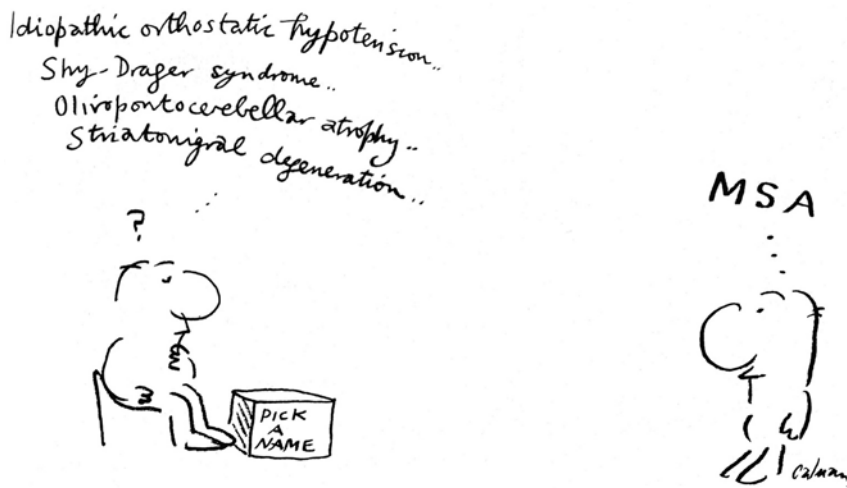 Idiopathic orthostatic hypotension..
Shy-Drager syndrome..
Olivopontocerebellar atrophy..
Striatonigral degeneration..
?
MSA
PICK
A
NAME